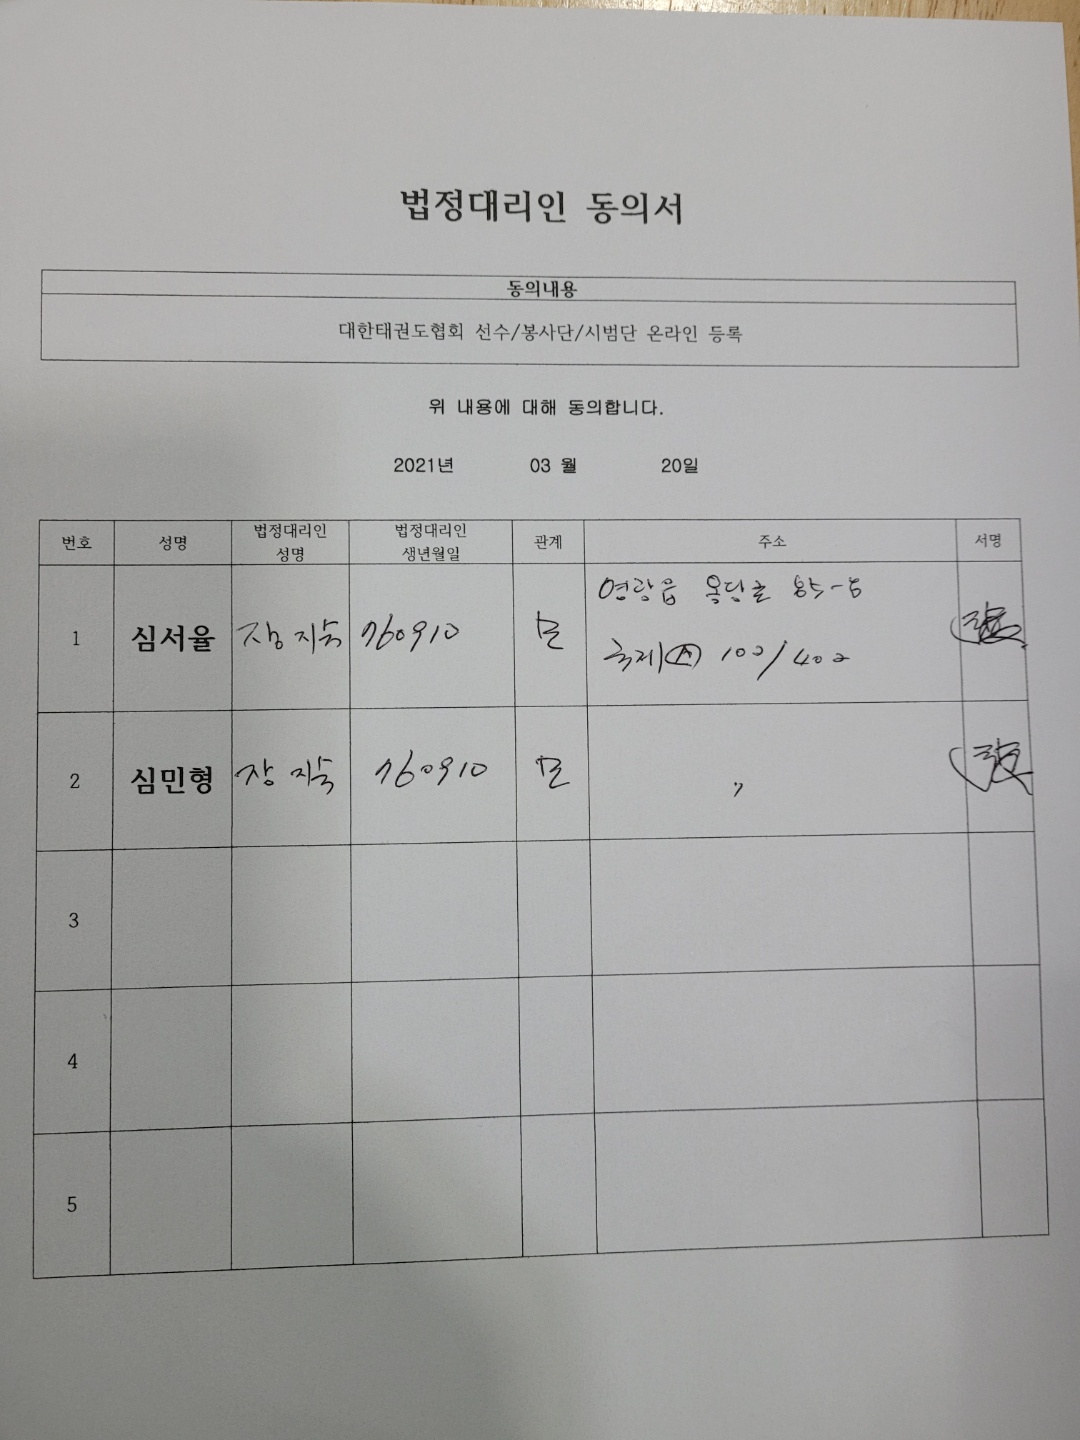 법정대리인 동의서
동의내용
대한태권도협회 선수/봉사단/시범단 온라인 등록
위 내용에 대해 동의합니다.
2021년 03 월 20일
번호 성명 법정대리인 성명 법정대리인 생년월일 관계 주소 서명
1 심서율 장지숙 760910 모 영광읍 옥당로 85-8
국제Ⓐ 102/402
2 심민형 장지숙 760910 모 〃
3
4
5